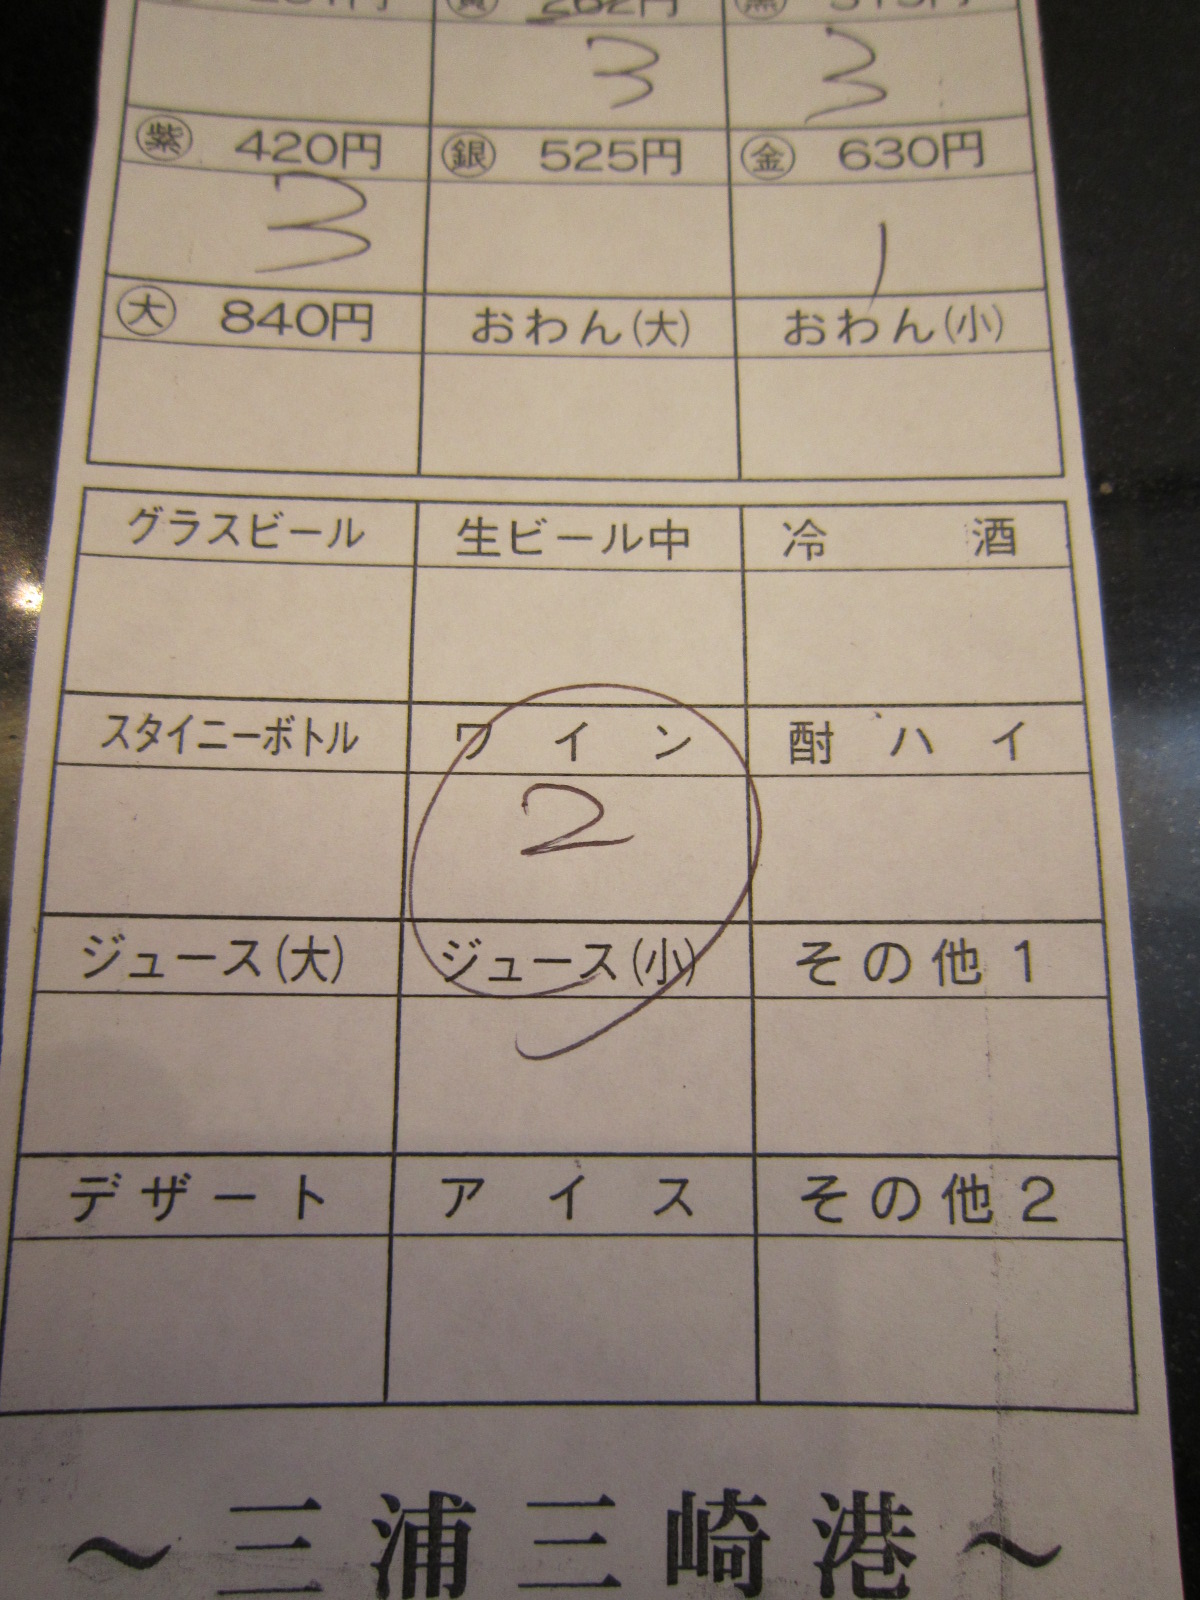 黄 262円 黒 315円
3 3
紫 420円 銀 525円 金 630円
3 1
大 840円 おわん(大) おわん(小)
グラスビール 生ビール中 冷 酒
スタイニーボトル ワイン 酎ハイ
2
ジュース(大) ジュース(小) その他1
デザート アイス その他2
～三浦三崎港～